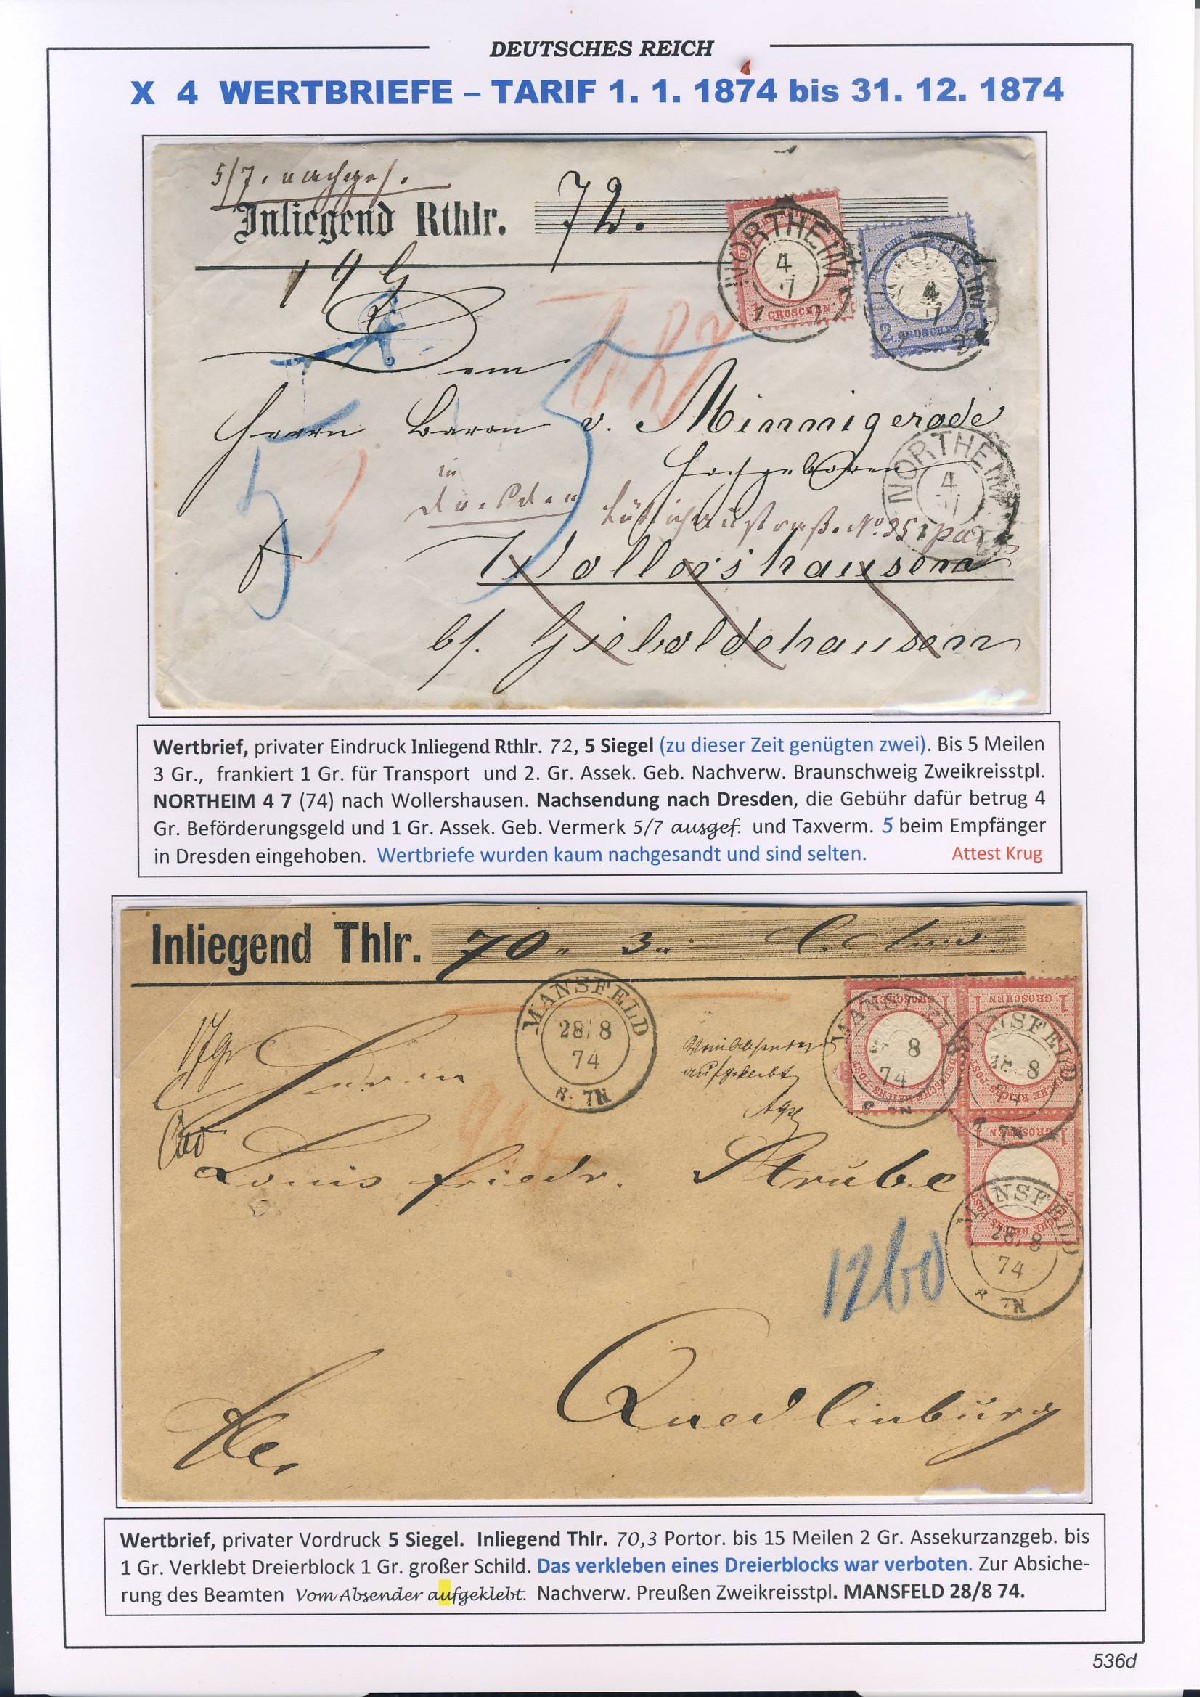 DEUTSCHES REICH
X 4 WERTBRIEFE – TARIF 1. 1. 1874 bis 31. 12. 1874
5/7. nachges.
Inliegend Rthlr. 72.
NORTHEIM
4
7
1 GROSCHEN
NORTHEIM
4
7
2 GROSCHEN 2
Dem
Herrn Baron v. Minnigerode
Hochgeboren
NORTHEIM
4
7
in
Dresden
5
5
Wollershausen
bf. Gieboldehausen
Wertbrief, privater Eindruck Inliegend Rthlr. 72, 5 Siegel (zu dieser Zeit genügten zwei). Bis 5 Meilen
3 Gr., frankiert 1 Gr. für Transport und 2. Gr. Assek. Geb. Nachverw. Braunschweig Zweikreisstpl.
NORTHEIM 4 7 (74) nach Wollershausen. Nachsendung nach Dresden, die Gebühr dafür betrug 4
Gr. Beförderungsgeld und 1 Gr. Assek. Geb. Vermerk 5/7 ausgef. und Taxverm. 5 beim Empfänger
in Dresden eingehoben. Wertbriefe wurden kaum nachgesandt und sind selten. Attest Krug
Inliegend Thlr. 70 " 3 "
MANSFELD
28/8
74
6-7N
Vom Absender
aufgeklebt
1 GROSCHEN 1
1 GROSCHEN
MANSFELD
8
74
MANSFELD
28/8
74
1 GROSCHEN
MANSFELD
28/8
74
6-7N
Herrn
Louis Friedr. Strube
1260
Quedlinburg
Wertbrief, privater Vordruck 5 Siegel. Inliegend Thlr. 70,3 Portor. bis 15 Meilen 2 Gr. Assekurzanzgeb. bis
1 Gr. Verklebt Dreierblock 1 Gr. großer Schild. Das verkleben eines Dreierblocks war verboten. Zur Absiche-
rung des Beamten Vom Absender aufgeklebt. Nachverw. Preußen Zweikreisstpl. MANSFELD 28/8 74.
536d